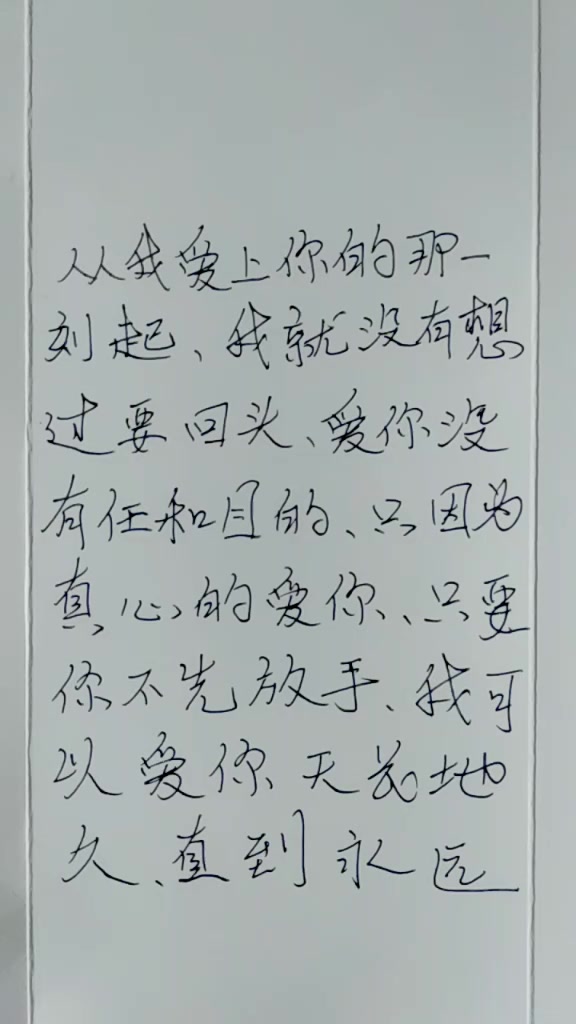 从我爱上你的那一
刻起、我就没有想
过要回头、爱你没
有任和目的、只因为
真心的爱你、只要
你不先放手、我可
以爱你天长地
久、直到永远